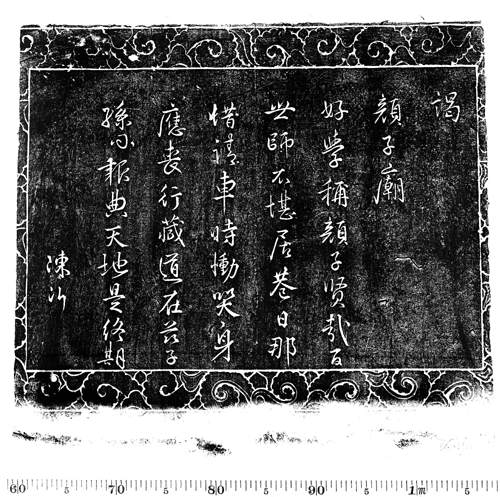 謁
顏子廟
好學稱顏子賢哉百
世師不堪居巷日那
惜請車時慟哭身
應喪行藏道在茲子
孫報典天地是終期
陳沂
60 5 70 5 80 5 90 5 1m 5